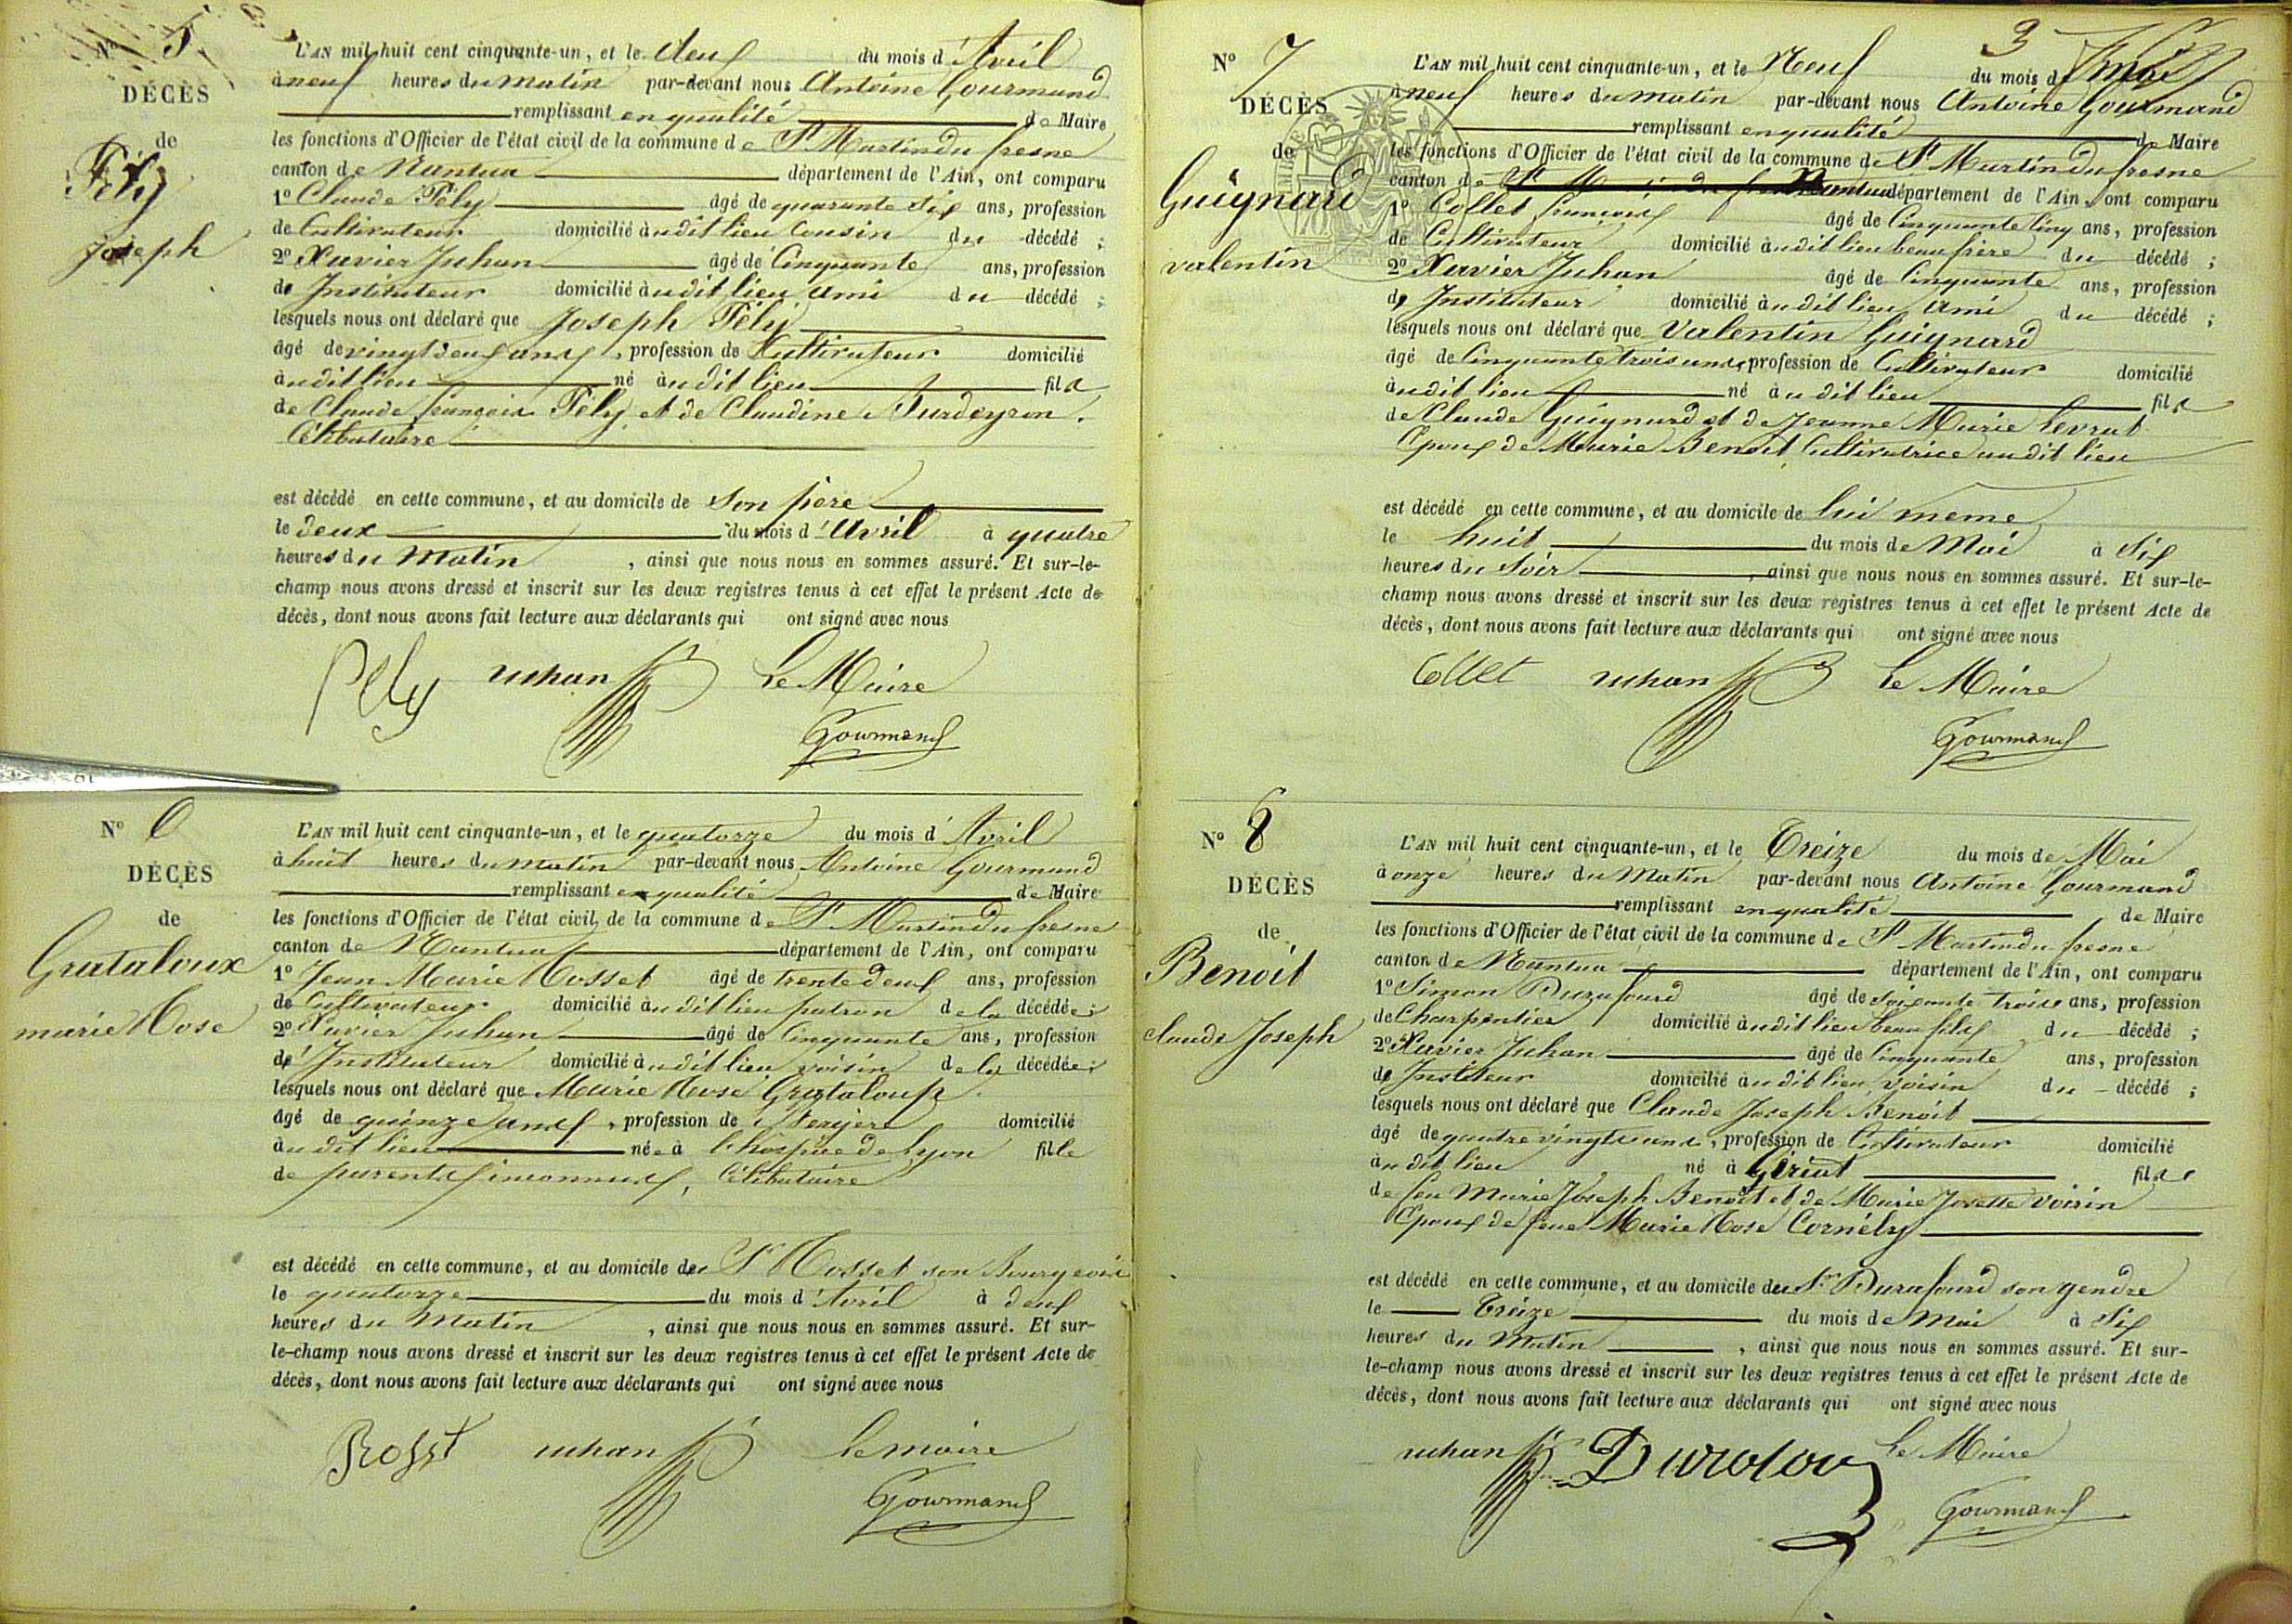 N° 5
DÉCÈS
de
Pély
Joseph
L'AN mil huit cent cinquante-un, et le deux du mois d'Avril
à neuf heures du matin par-devant nous Antoine Gourmand
remplissant en qualité de Maire
les fonctions d'Officier de l'état civil de la commune de St Martin du fresne
canton de Nantua département de l'Ain, ont comparu
1° Claude Pély âgé de quarante six ans, profession
de Cultivateur domicilié audit lieu Cousin du décédé ;
2° Xavier Juhan âgé de Cinquante ans, profession
de Instituteur domicilié audit lieu ami du décédé ;
lesquels nous ont déclaré que Joseph Pély
âgé de vingt deux ans, profession de Cultivateur domicilié
audit lieu né audit lieu fils
de Claude françois Pély et de Claudine
Célibataire
est décédé en cette commune, et au domicile de son père
le deux du mois d'Avril à quatre
heures du Matin, ainsi que nous nous en sommes assuré. Et sur-le-
champ nous avons dressé et inscrit sur les deux registres tenus à cet effet le présent Acte de
décès, dont nous avons fait lecture aux déclarants qui ont signé avec nous
Pely Juhan Le Maire
Gourmand
N° 6
DÉCÈS
de
Grataloux
marie Rose
L'AN mil huit cent cinquante-un, et le quatorze du mois d'Avril
à huit heures du matin par-devant nous Antoine Gourmand
remplissant en qualité de Maire
les fonctions d'Officier de l'état civil de la commune de St Martin du fresne
canton de Nantua département de l'Ain, ont comparu
1° Jean Marie Rosset âgé de trente deux ans, profession
de Cultivateur domicilié audit lieu patron de la décédée ;
2° Xavier Juhan âgé de Cinquante ans, profession
de Instituteur domicilié audit lieu voisin de la décédée ;
lesquels nous ont déclaré que Marie Rose Grataloux
âgé de quinze ans, profession de Bergère domicilié
audit lieu née à l'hospice de Lyon fille
de parents inconnus, Célibataire
est décédé en cette commune, et au domicile de Sr Rosset son Bourgeois
le quatorze du mois d'Avril à deux
heures du Matin, ainsi que nous nous en sommes assuré. Et sur-
le-champ nous avons dressé et inscrit sur les deux registres tenus à cet effet le présent Acte de
décès, dont nous avons fait lecture aux déclarants qui ont signé avec nous
Rosset Juhan Le maire
Gourmand
3
N° 7
DÉCÈS
de
Guignard
valentin
L'AN mil huit cent cinquante-un, et le Neuf du mois de mai
à neuf heures du matin par-devant nous Antoine Gourmand
remplissant en qualité de Maire
les fonctions d'Officier de l'état civil de la commune de St Martin du fresne
canton de Nantua département de l'Ain, ont comparu
1° Collet françois âgé de Cinquante Cinq ans, profession
de Cultivateur domicilié audit lieu beau frère du décédé ;
2° Xavier Juhan âgé de Cinquante ans, profession
de Instituteur domicilié audit lieu ami du décédé ;
lesquels nous ont déclaré que Valentin Guignard
âgé de Cinquante trois ans, profession de Cultivateur domicilié
audit lieu né audit lieu fils
de Claude Guignard et de Jeanne Marie Levrat
Epoux de Marie Benoit Cultivatrice audit lieu
est décédé en cette commune, et au domicile de lui meme
le huit du mois de Mai à Six
heures du Soir, ainsi que nous nous en sommes assuré. Et sur-le-
champ nous avons dressé et inscrit sur les deux registres tenus à cet effet le présent Acte de
décès, dont nous avons fait lecture aux déclarants qui ont signé avec nous
Collet Juhan Le Maire
Gourmand
N° 8
DÉCÈS
de
Benoit
claude Joseph
L'AN mil huit cent cinquante-un, et le Treize du mois de Mai
à onze heures du Matin par-devant nous Antoine Gourmand
remplissant en qualité de Maire
les fonctions d'Officier de l'état civil de la commune de St Martin du fresne
canton de Nantua département de l'Ain, ont comparu
1° Simon Durafourd âgé de soixante trois ans, profession
de Charpentier domicilié audit lieu beau fils du décédé ;
2° Xavier Juhan âgé de Cinquante ans, profession
de Instituteur domicilié audit lieu voisin du décédé ;
lesquels nous ont déclaré que Claude Joseph Benoit
âgé de quatre vingts ans, profession de Cultivateur domicilié
audit lieu né à Giriat fils
de feu Marie Joseph Benoit et de Marie Josette Voisin
Epoux de feue Marie Rose Cornély
est décédé en cette commune, et au domicile du Sr Durafourd son gendre
le Treize du mois de Mai à Six
heures du Matin, ainsi que nous nous en sommes assuré. Et sur-
le-champ nous avons dressé et inscrit sur les deux registres tenus à cet effet le présent Acte de
décès, dont nous avons fait lecture aux déclarants qui ont signé avec nous
Juhan Le Maire
Gourmand